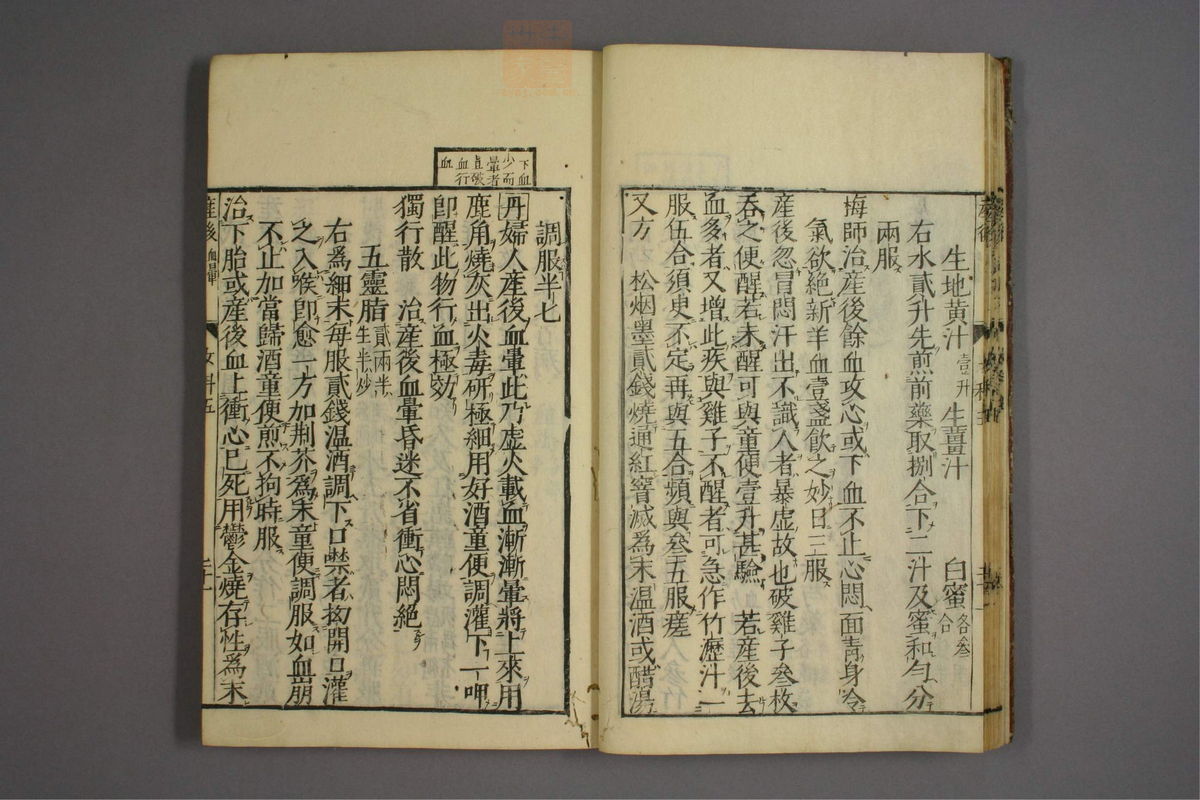 生地黄汁壹升 生薑汁 白蜜各叁合
右水貳升先煎前藥取捌合下二汁及蜜和勻分
兩服
梅師治産後餘血攻心或下血不止心悶面青身冷
氣欲絶新羊血壹盞飲之妙日三服
産後忽冒悶汗出不識人者暴虚故也破雞子叁枚
呑之便醒若未醒可與童便壹升甚驗 若産後去
血多者又增此疾與雞子不醒者可急作竹瀝汁一
服伍合須史不定再與五合頻與叁五服瘥
又方 松烟墨貳錢燒通紅窨滅為末温酒或醋湯
調服半七
下血少而暈者直破血行血
丹婦人産後血暈此乃虚火載血漸漸暈將上來用
鹿角燒灰出火毒硏極細用好酒童便調灌下一呷
卽醒此物行血極効
獨行散 治産後血暈昏迷不省衝心悶絶
五靈脂貳兩半生半炒
右爲細末每服貳錢温酒調下口噤者抝開口灌
之入喉卽愈一方加荆芥爲末童便調服如血崩
不止加當歸酒童便煎不拘時服
治下胎或産後血上衝心已死用鬱金燒存性爲末
産後 血暈 女科五 二十一